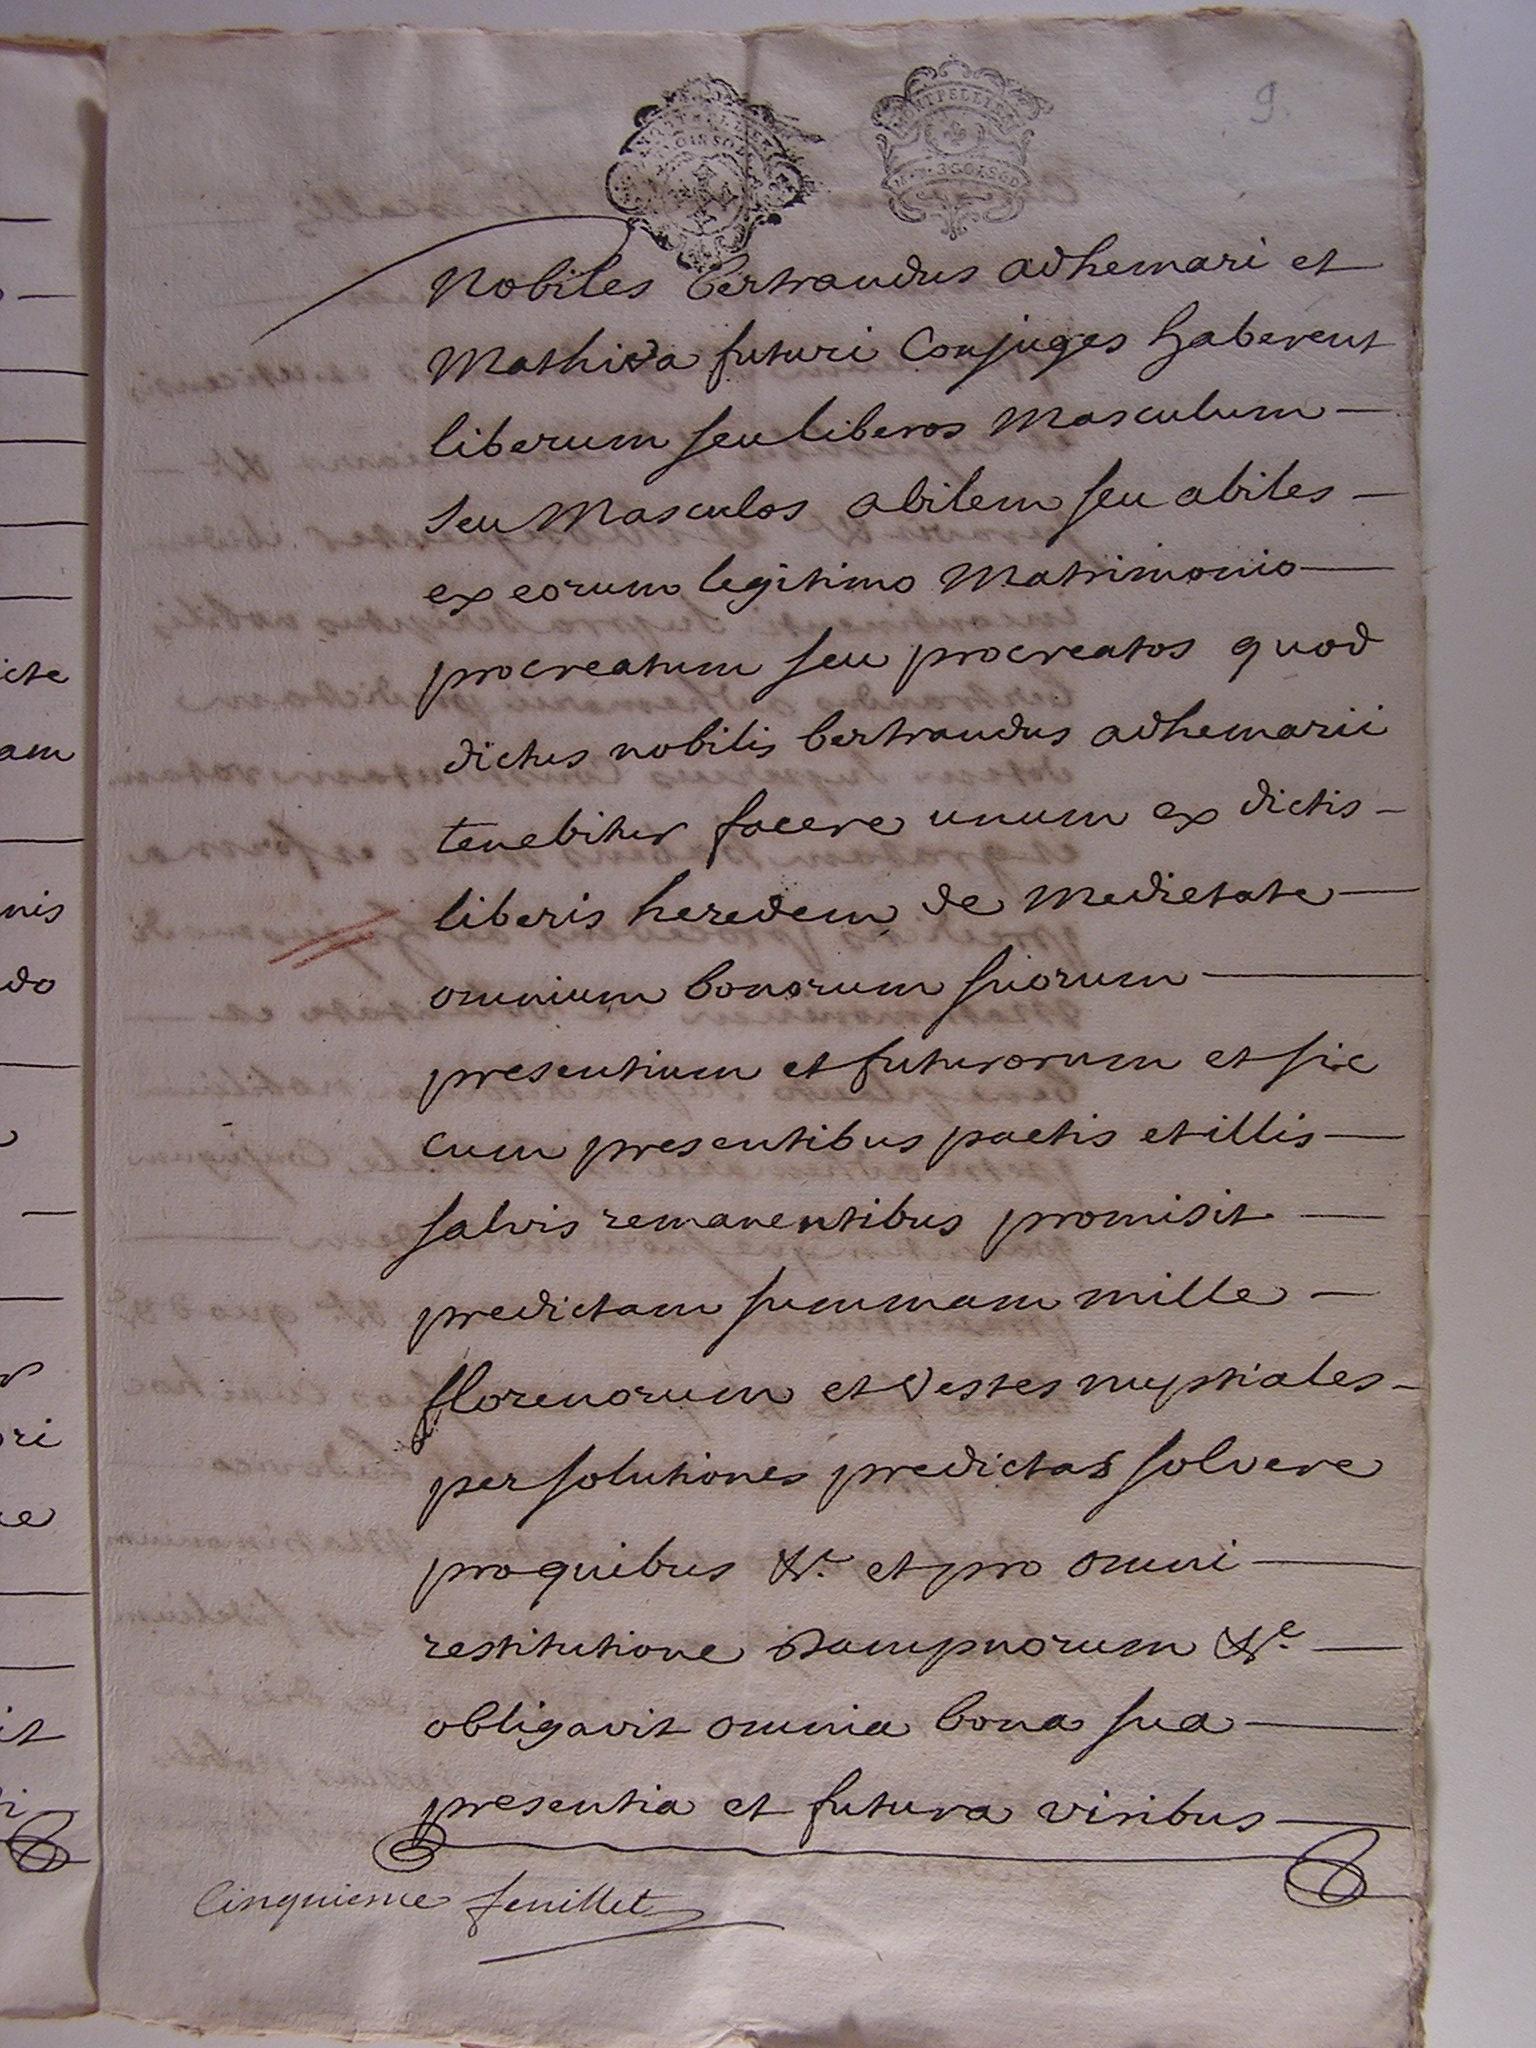 9.
MONTPELLIER
Nobiles bertrandus adhemari et
Mathida futuri Conjuges haberent
liberum seu liberos Masculum
seu Masculos abilem seu abiles
ex eorum legitimo Matrimonio
procreatum seu procreatos quod
dictus nobilis bertrandus adhemarii
tenebitur facere unum ex dictis
liberis heredem de Medietate
omnium bonorum suorum
presentium et futurorum et sic
cum presentibus pactis et illis
salvis remanentibus promisit
predictam summam mille
florenorum et vestes nuptiales
per solutiones predictas solvere
pro quibus &c. et pro omni
restitutione dampnorum &c.
obligavit omnia bona sua
presentia et futura viribus
Cinquieme feuillet